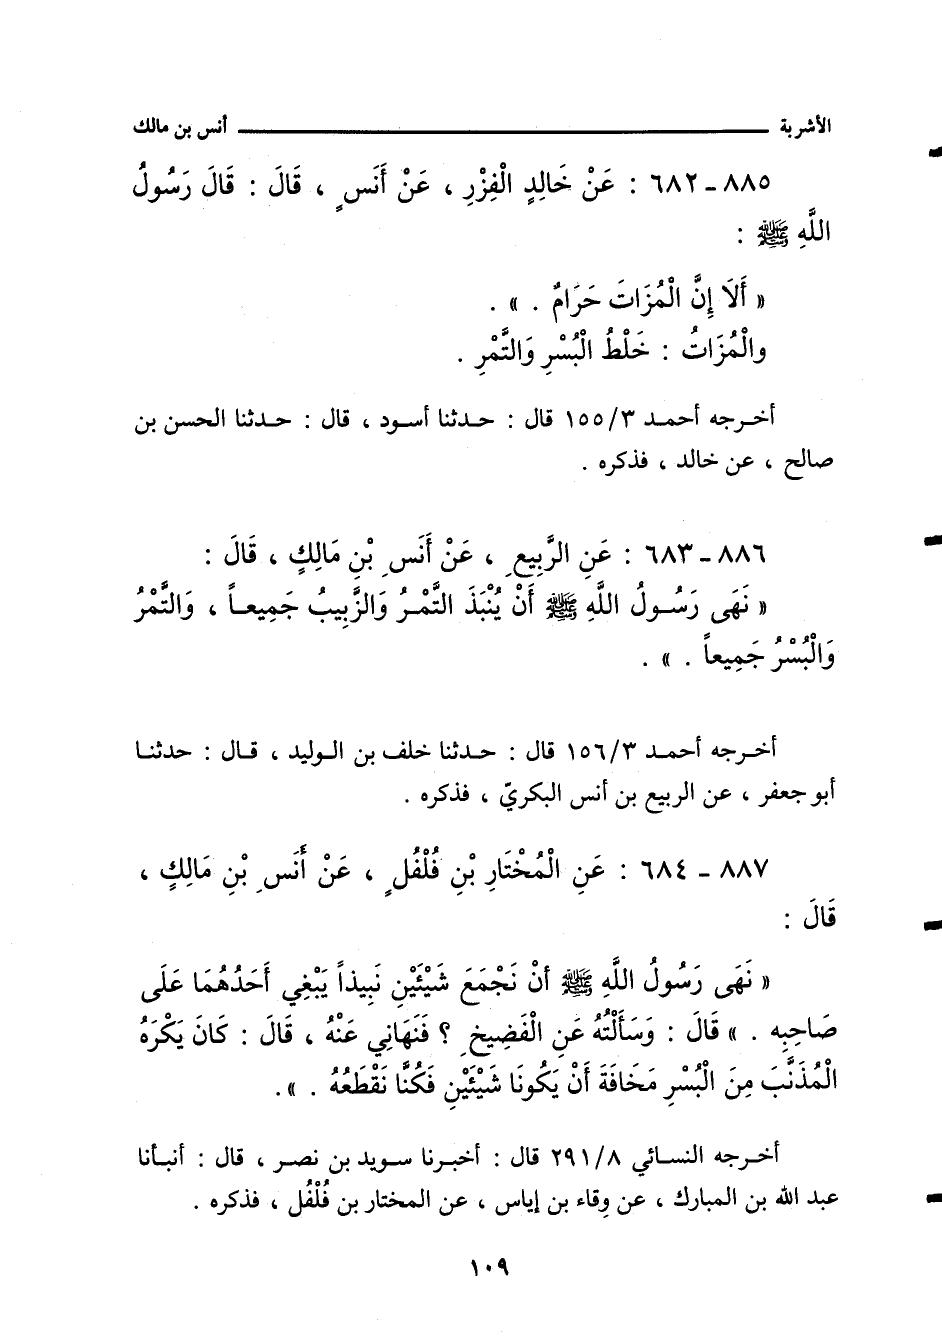 الأشربة ـــــــــ أنس بن مالك
٨٨٥ ـ ٦٨٢ : عَنْ خَالِدٍ الْفِزْرِ ، عَنْ أَنَسٍ ، قَالَ : قَالَ رَسُولُ
اللَّهِ ﷺ :
« أَلَا إِنَّ الْمُزَاتَ حَرَامٌ . » .
والْمُزَاتُ : خَلْطُ الْبُسْرِ وَالتَّمْرِ .
أخرجه أحمد ٣/١٥٥ قال : حدثنا أسود ، قال : حدثنا الحسن بن
صالح ، عن خالد ، فذكره .
٨٨٦ ـ ٦٨٣ : عَنِ الرَّبِيعِ ، عَنْ أَنَسِ بْنِ مَالِكٍ ، قَالَ :
« نَهَى رَسُولُ اللَّهِ ﷺ أَنْ يُنْبَذَ التَّمْرُ وَالزَّبِيبُ جَمِيعاً ، وَالتَّمْرُ
وَالْبُسْرُ جَمِيعاً . » .
أخرجه أحمد ٣/١٥٦ قال : حدثنا خلف بن الوليد ، قال : حدثنا
أبو جعفر ، عن الربيع بن أنس البكريّ ، فذكره .
٨٨٧ ـ ٦٨٤ : عَنِ الْمُخْتَارِ بْنِ فُلْفُلٍ ، عَنْ أَنَسِ بْنِ مَالِكٍ ،
قَالَ :
« نَهَى رَسُولُ اللَّهِ ﷺ أنْ نَجْمَعَ شَيْئَيْنِ نَبِيذاً يَبْغِي أَحَدُهُمَا عَلَى
صَاحِبِه . » قَالَ : وَسَأَلْتُهُ عَنِ الْفَضِيخِ ؟ فَنَهَانِي عَنْهُ ، قَالَ : كَانَ يَكْرَهُ
الْمُذَنَّبَ مِنَ الْبُسْرِ مَخَافَةَ أَنْ يَكُونَا شَيْئَيْنِ فَكُنَّا نَقْطَعُهُ . ».
أخرجه النسائي ٨/٢٩١ قال : أخبرنا سويد بن نصر ، قال : أنبأنا
عبد الله بن المبارك ، عن وِقاء بن إياس ، عن المختار بن فُلْفُل ، فذكره .
١٠٩